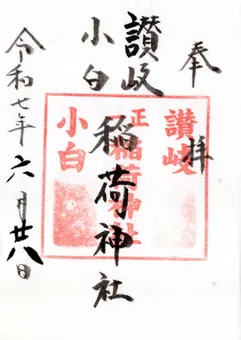 奉拝
讃岐
小白
稲荷神社
令和七年六月廿八日
讃岐
正一
稲荷神社
小白